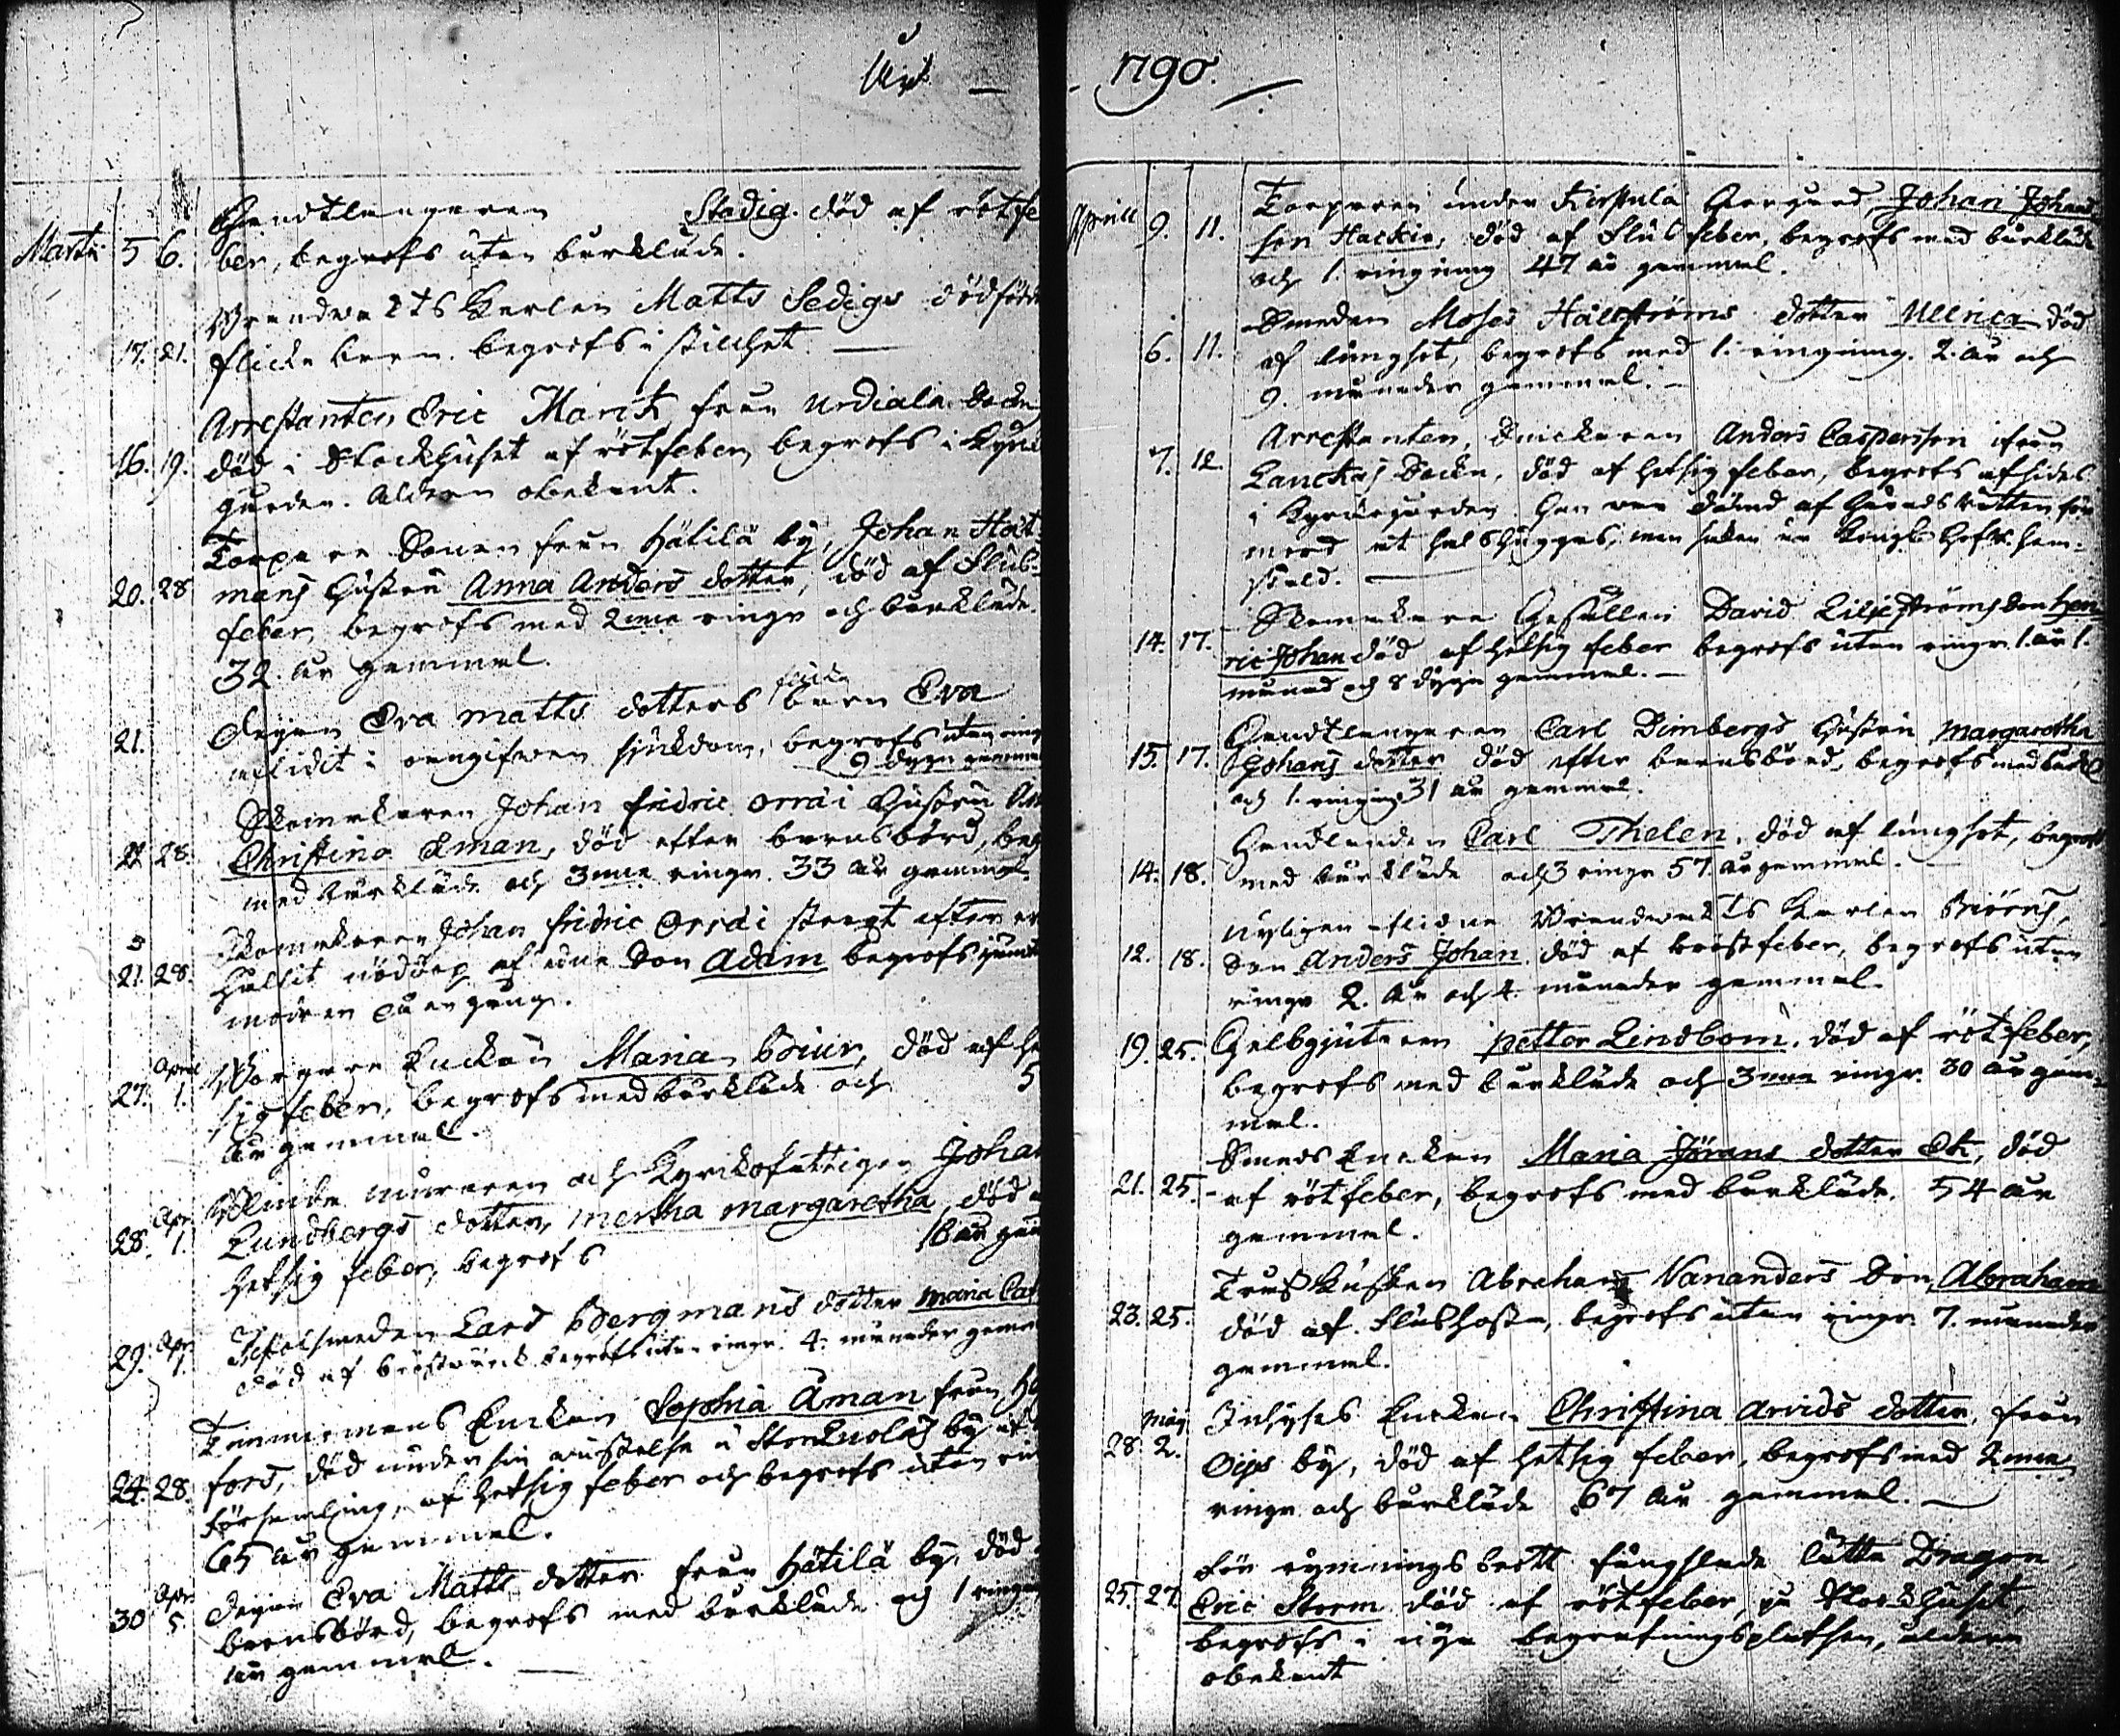 År
1790.
Handtlangaren Stadig. död af rötfe
Martii 5 6. ber, begrofs utan bårkläde.
Brandvakts Karlen Matts Sedigs dödfödde
17. 21. flicke barn. begrofs i stillhet.
Arrestanten Eric Marck från Urdiala Sockn
16. 19. död i Stockhuset af rötfeber, begrofs i Kyrko
gården. Åldern obekant.
Torpare Sonen från Hätilä by, Johan Hat-
20. 28 mans Hustru Anna Anders dotter, död af Slub-
feber, begrofs med 2nne ringn. och bårkläde.
32 år gammal.
Pigan Eva Matts dotters flicke barn Eva
21. aflidit i oangifven sjukdom, begrofs utan ring
9 dygn gamma
Skomakaren Johan Fridric Orrdi Hustru An
22 28. Christina Eman, död efter barnsbörd, beg
med bårkläde och 3nne ringn. 33 år gammal.
Skomakaren Johan Fridric Orrdi straxt efter er
21. 28. hållit nöddop afledne Son Adam begrofs
modren på en gång.
April Borgare Enckan Maria Briur, död af he
27. 1. sig feber, begrofs med bårkläde och 5
år gammal.
Blinde muraren och Kyrkofattigen Johan
Apr. Lundbergs dotter, Mertha Margaretha, död a
28. 1. hetsig feber, begrofs 18 år gam
Apr. Lars Bergmans dotter Maria Cat
29. 1. död af bröstvärck begrofs utan ringn. 4. månader gamm
Timmermans Enckan Sophia Åman från
24. 28. fors, död under sin vistelse i by
församling, af hetsig feber och begrofs utan rin
65 år gammal.
Apr. Pigan Eva Matts dotter från Hätilä by, död
30 5. barnsbörd, begrofs med bårkläde och 1 ringn
år gammal.
Aprill 9. 11. Torparen under Kirstula Säregård, Johan Johans
son Hackin, död af Slubfeber, begrofs med bårkläde
och 1. ringning 47 år gammal.
Smeden Moses Hällströms dotter Ullrica död
6. 11. af lungsot, begrofs med 1. ringning. 2. år och
9. månader gammal.
Arrestanten, Snickaren Anders Caspersson ifrån
7. 12. Lanckas Sockn, död af hetsig feber, begrofs afsides
i Kyrkogården. Han var dömd af Härads Rätten för
mord at halshuggas, men saken är Kongl. Hofr. hem-
stäld.
Skomakare Gesällen David Liljeströms Son Hen
14. 17. ric Johan död af hetsig feber begrofs utan ringn. 1. år 1.
månad och 8 dygn gammal.
Handtlangaren Carl Dimbergs Hustru Margaretha
15. 17. Johans dotter död efter barnsbörd, begrofs med bårkl
och 1. ringning 31 år gammal.
Handlanden Carl Thelen, död af lungsot, begrofs
14. 18. med bårkläde och 3 ringn. 57. år gammal.
Nyligen aflidne Brandvakts Karlen Biörns
12. 18. Son Anders Johan, död af bröstfeber, begrofs utan
ringn. 2. år och 4 månader gammal.
19. 25. Gelbgjutaren Petter Lindbom, död af rötfeber,
begrofs med bårkläde och 3nne ringn. 30 år gam-
mal.
Smeds Enckan Maria Jörans dotter Ek, död
21. 25. af rötfeber, begrofs med bårkläde. 54 år
gammal.
Abraham Nananders Son, Abraham
23. 25. död af Slubhosta, begrofs utan ringn. 7. månader
gammal.
May Inhyses Enckan Christina Arvids dotter, från
28. 2. Ojes by, död af hetsig feber, begrofs med 2nne
ringn. och bårkläde 67 år gammal.
För rymningsbrott fängslade Lätta Dragon
25. 27. Eric Storm död af rötfeber, på Stockhuset,
begrofs i nya begrafningsplatsen, åldern
obekant